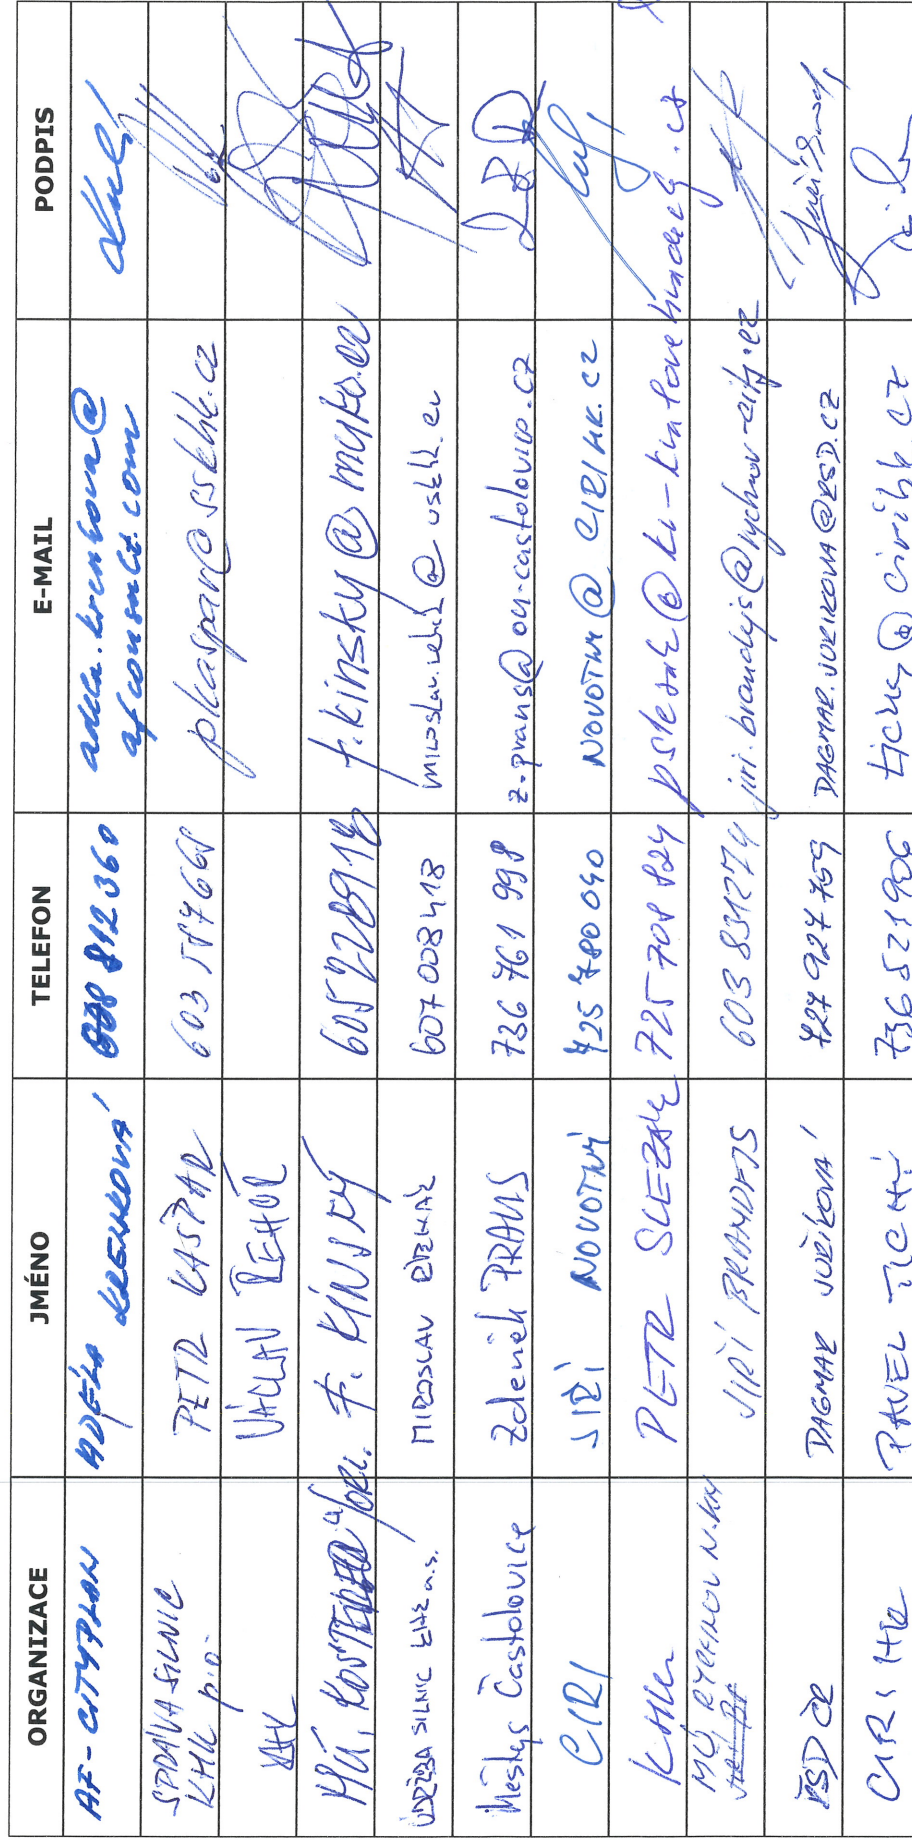 ORGANIZACE JMÉNO TELEFON E-MAIL PODPIS
AF-CITYPLAN ADÉLA KRENKOVÁ 608 812 360 adela.krenkova@
afconsult.com
SPRÁVA SILNIC PETR KAŠPAR 603 587668 pkaspar@sskhk.cz
KHK p.o.
KHK VÁCLAV ŘEHOŘ
MÚ, KOSTELEC n/ORL. F. KINSKÝ 605228918 f.kinsky@muko.cz
ÚDRŽBA SILNIC KHK a.s. MIROSLAV 607 008 418
Městys Častolovice Zdeněk PRAUS 736 761 998 z-praus@ou-castolovice.cz
CIRI JIŘÍ NOVOTNÝ 725 780 040 NOVOTNY@CIRIHK.CZ
KHK PETR SLEZÁK 725 708 824 pslezak@kr-kralovehradecky.cz
MÚ RYCHNOV N.KN JIŘÍ BRANDEJS 603 831274 jiri.brandejs@rychnov-city.cz
ŘSD ČR DAGMAR JUŘÍKOVÁ 727 927 759 DAGMAR.JURIKOVA@RSD.CZ
CIRI HK PAVEL TICHÝ 736 521 906 tichy@cirihk.cz